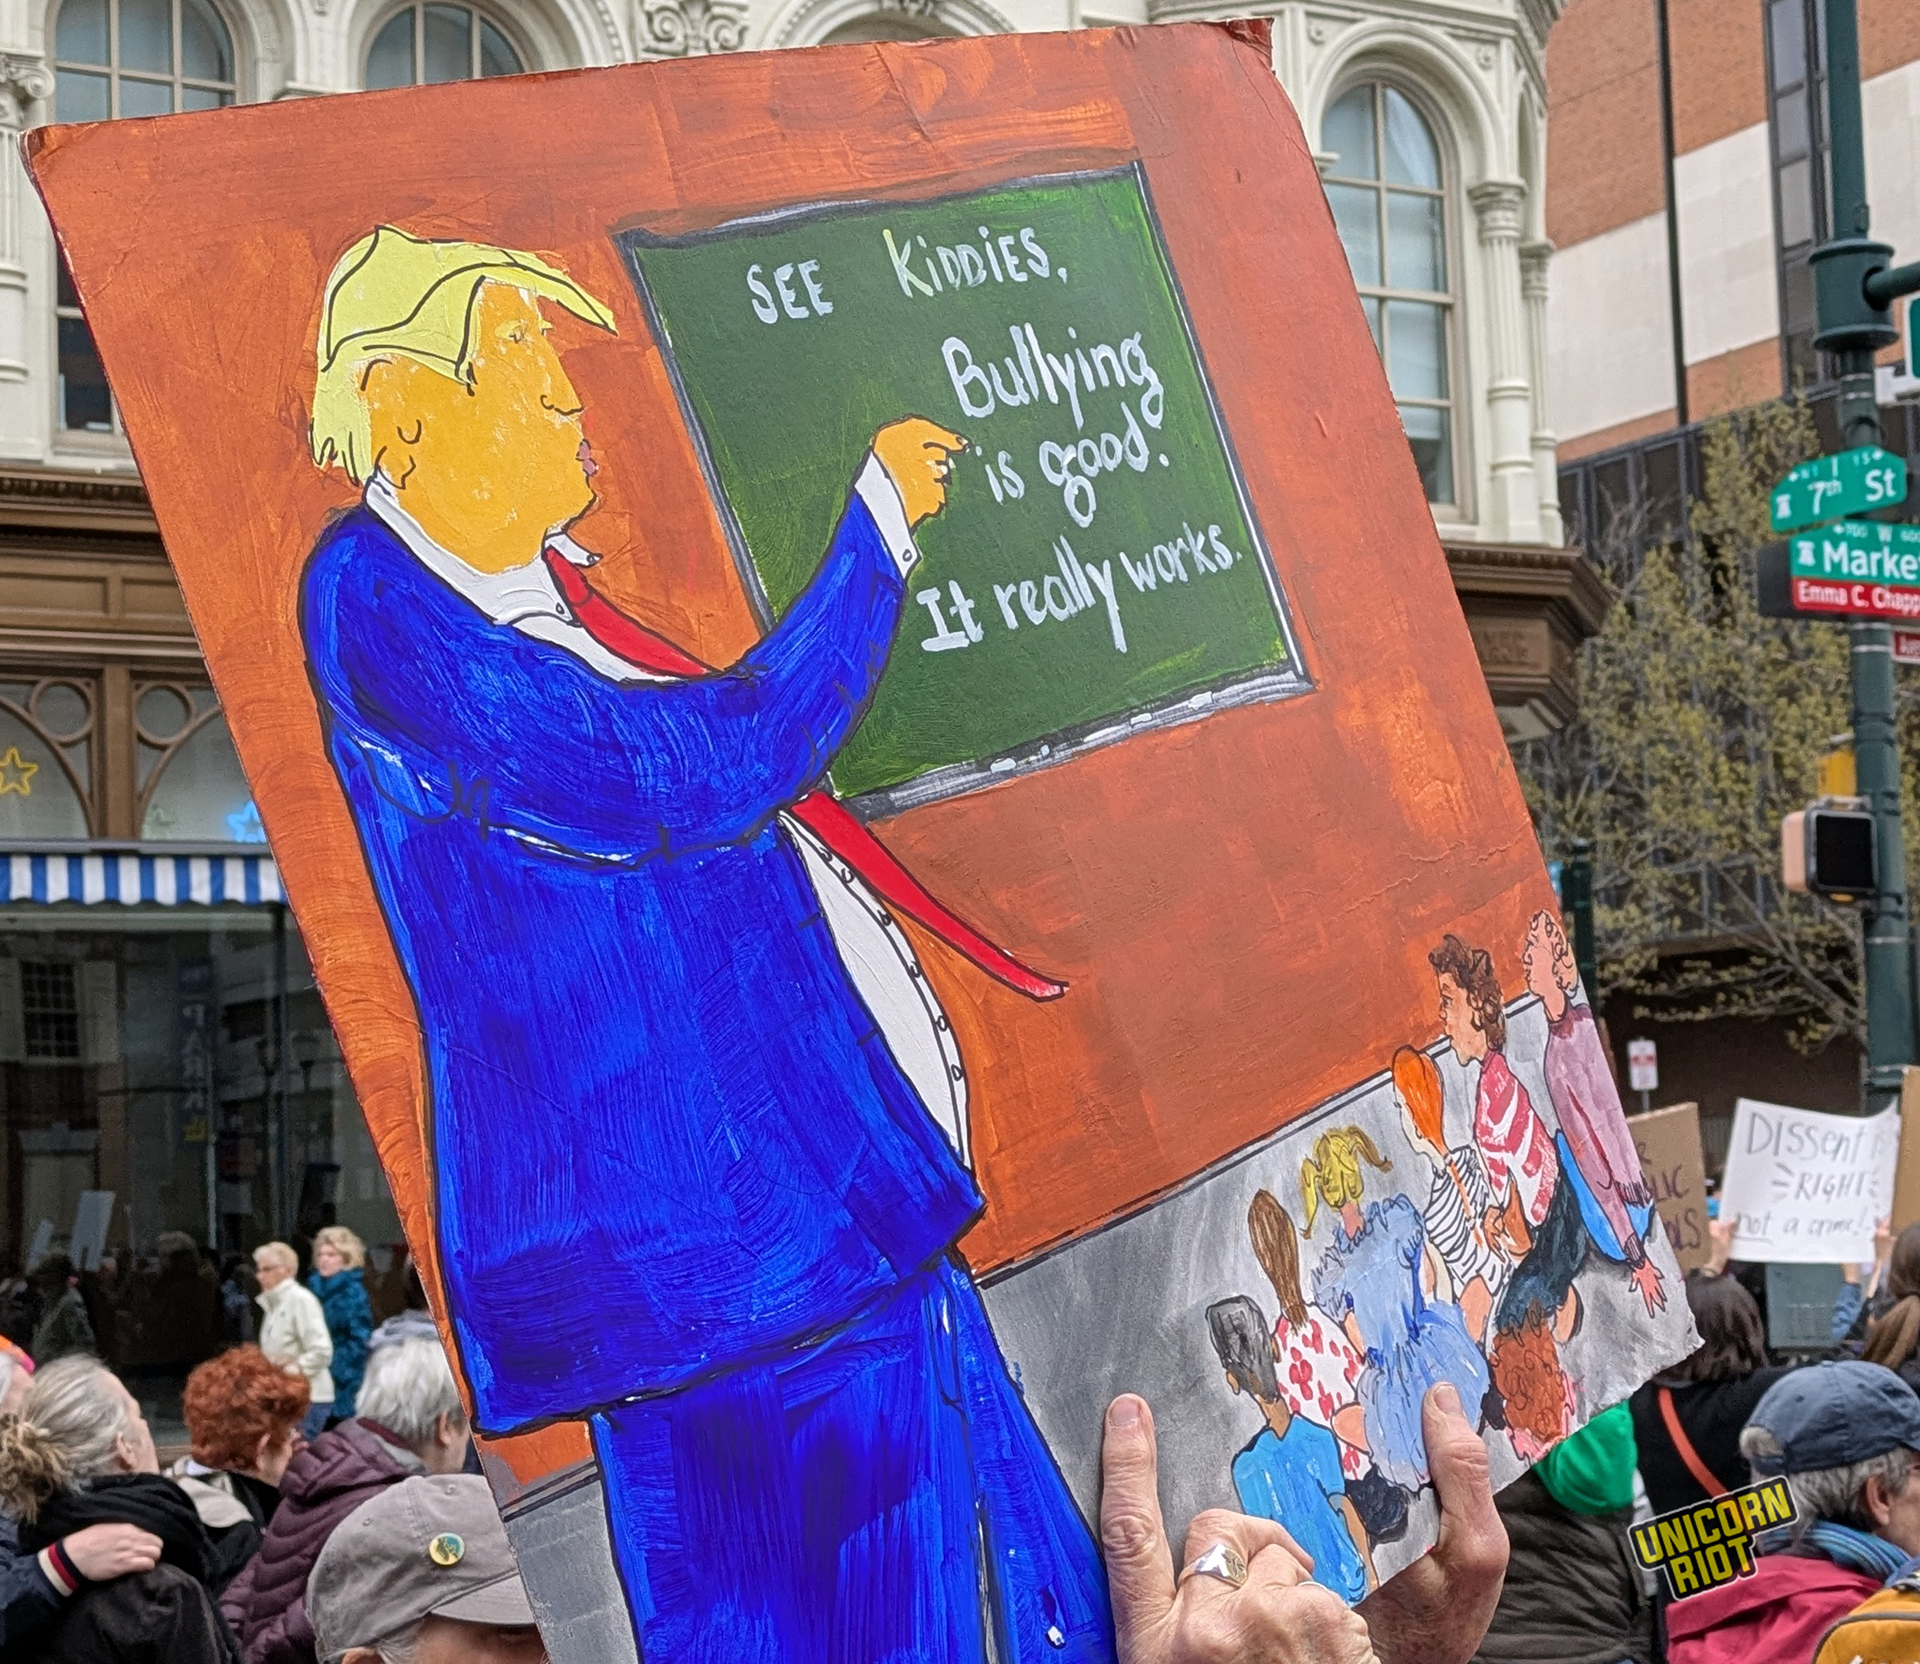 SEE KiDDiES,
Bullying
is good.
It really works.
7th St
Market
Emma C. Chapp
DISSENT
RIGHT
not a crime!
UNICORN
RIOT